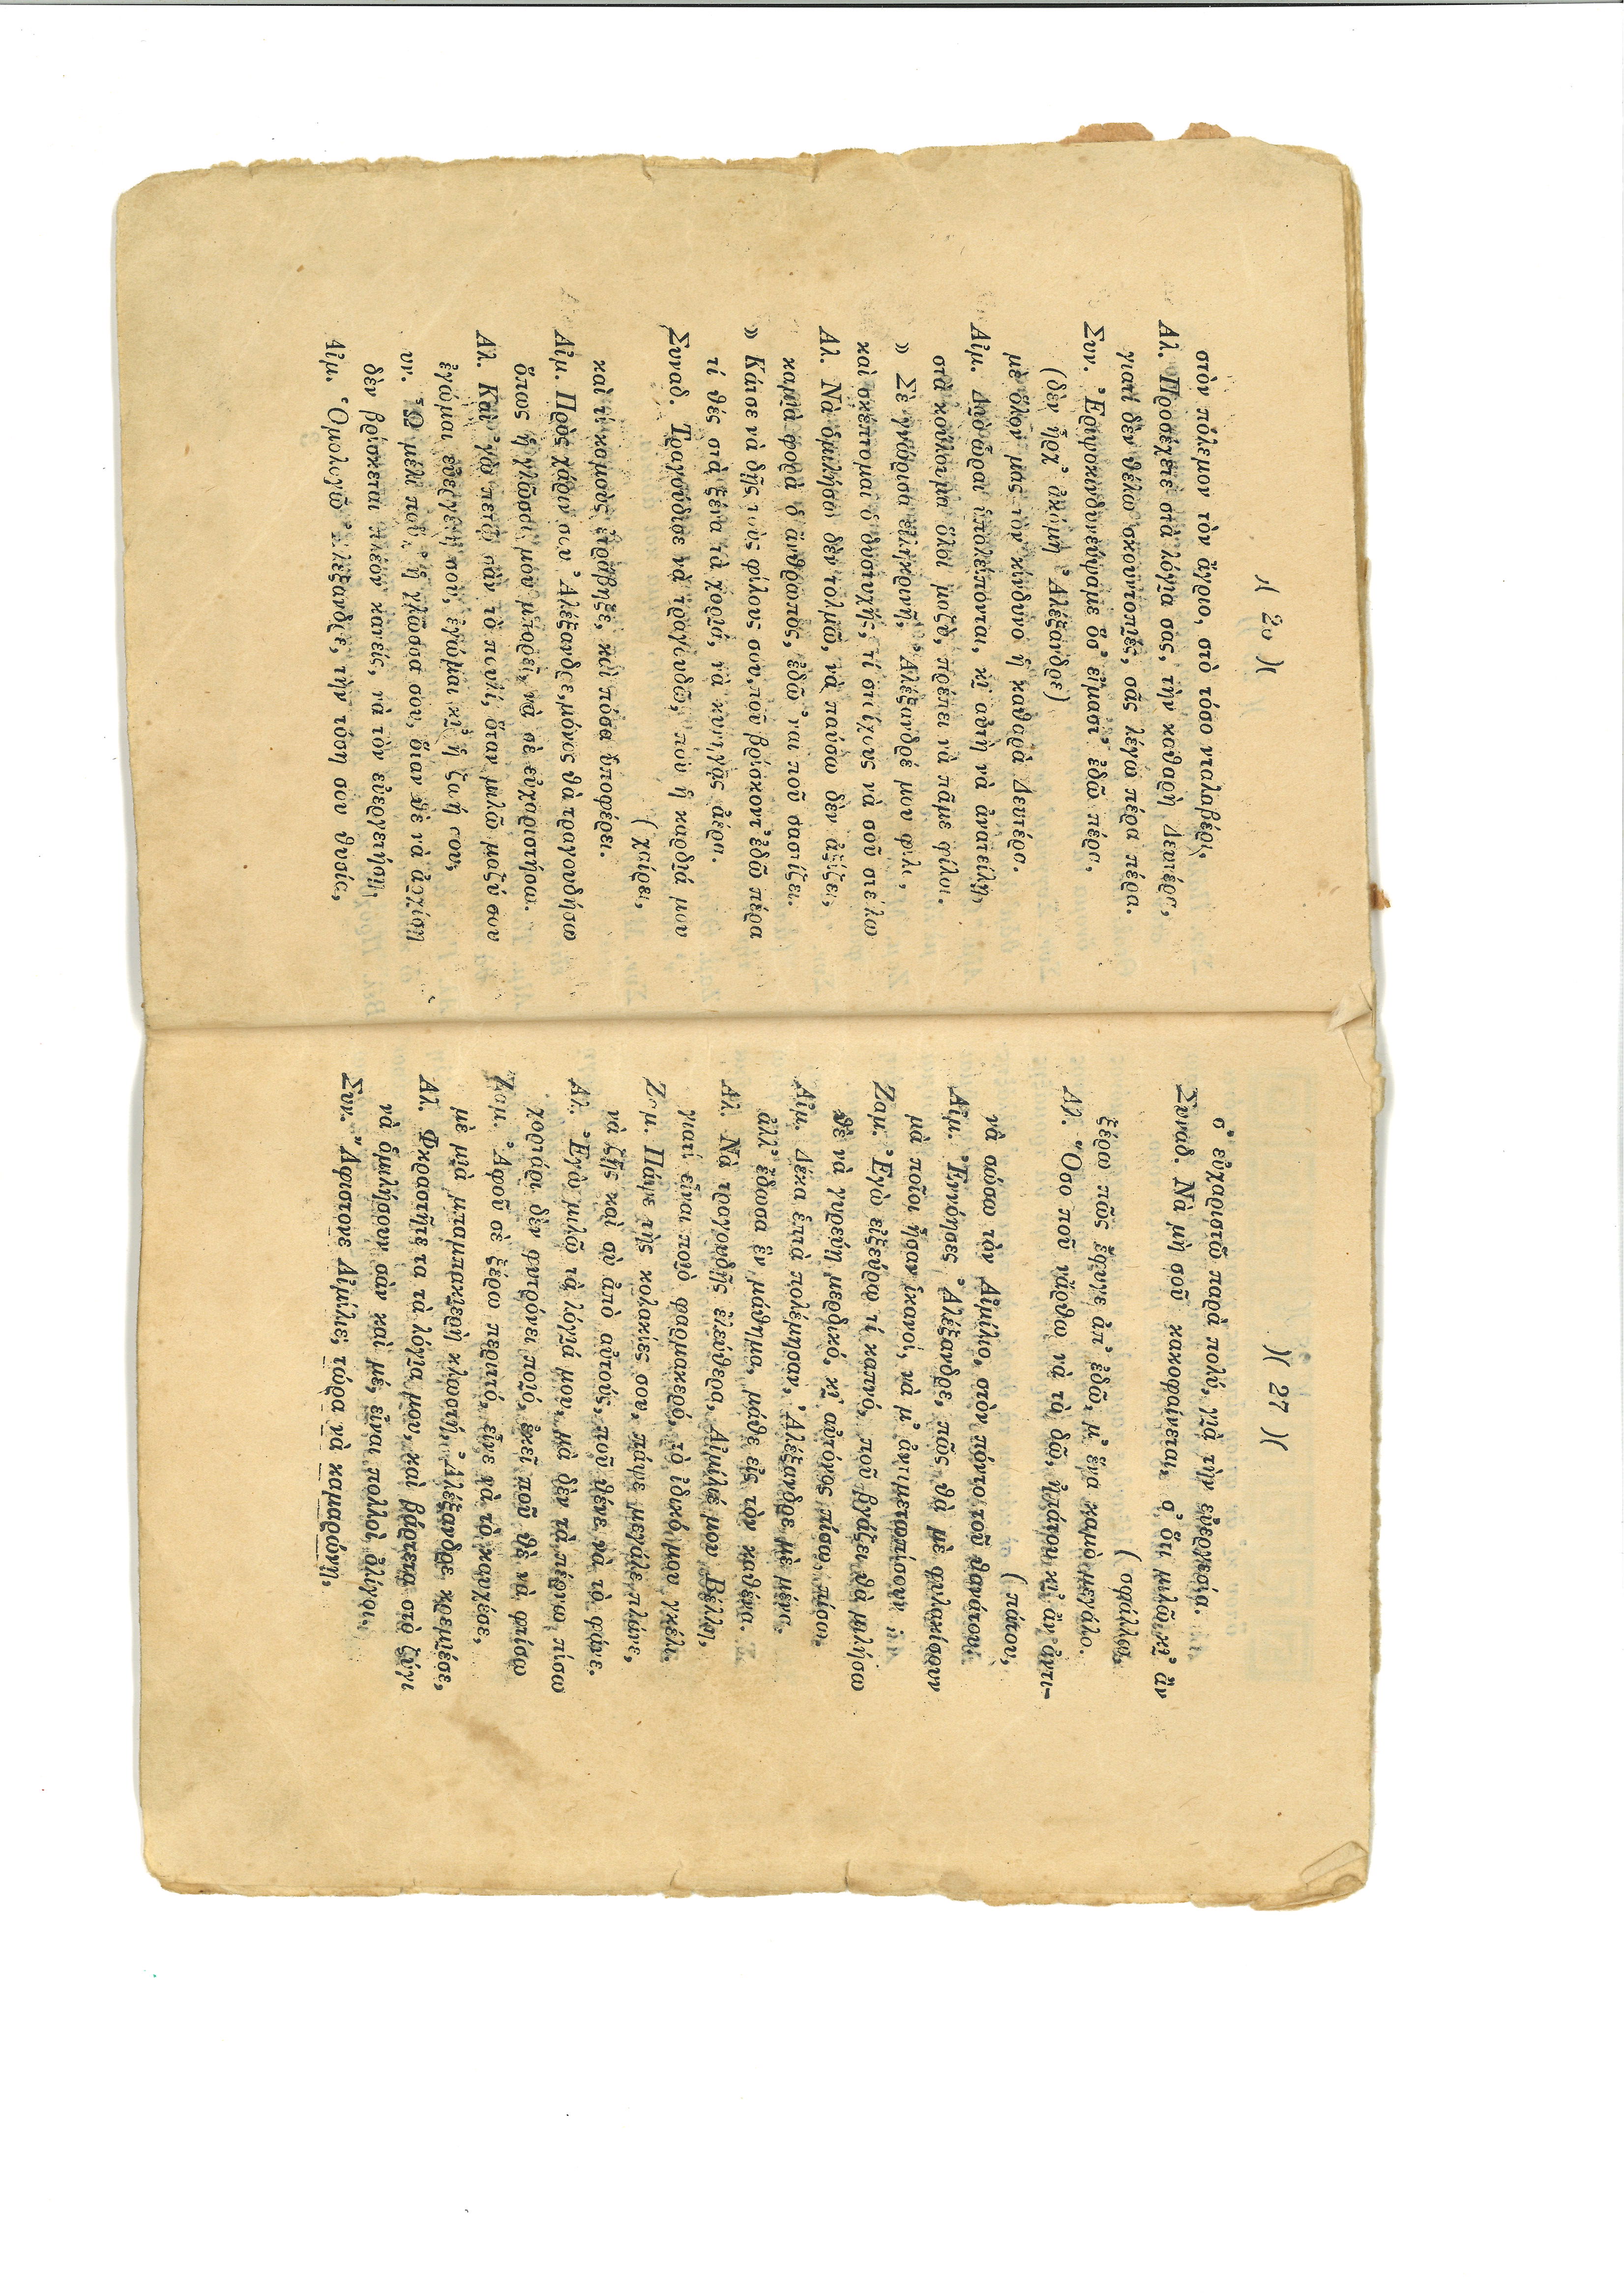 )( 26 )(
στὸν πόλεμον τὸν ἄγριο, στὸ τόσο νταλαβέρι,
Αλ. Προσέχετε στὰ λόγια σας, τὴν καθαρὴ Δευτέρα,
γιατὶ δὲν θέλω σκουντοπιὲς, σᾶς λέγω πέρα πέρα.
Συν. Ἐριψοκινδυνεύψαμε ὅσ' εἴμασι' ἐδῶ πέρα,
(δὲν ἦρχ' ἀκόμη Ἀλέξανδρε)
μὲ ὅλον μας τὸν κίνδυνο ἡ καθαρὰ Δευτέρα.
Αἰμ. Δυὸ ὧραι ὑπολείπονται, κι αὐτὴ νὰ ἀνατείλῃ,
στὰ κούλουμα ὅλοι μαζὺ, πρέπει νὰ πᾶμε φίλοι.
» Σὲ γνώρισα εἰλικρινῆ, Ἀλέξανδρέ μου φίλε,
καὶ σκέπτομαι ὁ δυστυχὴς, τί στίχους νὰ σοῦ στείλω
Αλ. Νὰ ὁμιλήσω δὲν τολμῶ, νὰ παύσω δὲν ἀξίζει,
καμμιὰ φορὰ ὁ ἄνθρωπος, ἐδῶ 'ναι ποῦ σαστίζει.
» Κάτσε νὰ δῇς τοὺς φίλους σου, ποῦ βρίσκοντ' ἐδῶ πέρα
τί θὲς στὰ ξένα τὰ χοριὰ, νὰ κυνηγᾷς ἀέρα.
Συναδ. Τραγούδισε νὰ τραγουδῶ, ποὺ ἡ καρδιά μου
(χαίρει,
καὶ τί καμοὺς ἐτράβηξε, καὶ πόσα ὑποφέρει.
Αἰμ. Πρὸς χάριν σου Ἀλέξανδρε, μόνος θὰ τραγουδήσω
ὅπως ἡ γλῶσσά μου μπορεῖ, νὰ σὲ εὐχαριστήσω.
Αλ. Καὶ 'γὼ πετῶ σὰν τὸ πουλὶ, ὅταν μιλῶ μαζύ σου
ἐγώμαι εὐεργέτη σου, ἐγώμαι κι' ἡ ζωή σου,
υν. Ὦ μέλι ποῦ ἡ γλῶσσα σου, ὅταν θὲ νὰ ἀρχίσῃ
δὲν βρίσκεται πλέον κανεὶς, νὰ τὸν εὐεργετήσῃ,
Αἰμ. Ὁμολογῶ Ἀλέξανδρε, τὴν τόση σου θυσία,
)( 27 )(
σ' εὐχαριστῶ παρὰ πολὺ, γιὰ τὴν εὐεργεσία.
Συναδ. Νὰ μὴ σοῦ κακοφαίνεται, σ' ὅτι μιλῶ κι' ἂν
(σφάλλω,
ξέρω πῶς ἔφυγε ἀπ' ἐδῶ, μ' ἕνα καμὸ μεγάλο.
Αλ. Ὅσο ποῦ νἄρθω νὰ τὸ δῶ, ἀπάτου κι' ἂν ἀντι-
(πάτου,
νὰ σώσω τὸν Αἰμίλιο, στὸν πόντο τοῦ θανάτου.
Αἰμ. Ἐννόησες Ἀλέξανδρε, πῶς θὰ μὲ φυλακίσουν
μὰ ποῖοι ἦσαν ἱκανοὶ, νὰ μ' ἀντιμετωπίσουν
Ζαμ. Ἐγὼ εἰξεύρω τί καπνὸ, ποῦ βγάζει θὰ μιλήσω
θὲ νὰ γυρεύῃ μερδικὸ, κι' αὐτόνος πίσω, πίσω.
Αἰμ. Δέκα ἑπτὰ πολέμησαν, Ἀλέξανδρε μὲ μένα.
ἀλλ' ἔδωσα ἓν μάθημα, μάθε εἰς τὸν καθένα.
Αλ. Νὰ τραγουδῇς ἐλεύθερα, Αἰμίλιέ μου Βέλλη,
γιατὶ εἶναι ποιὸ φαρμακερὸ, τὸ ἰδικό μου γκέλι.
Ζαμ. Πάψε τῂς κολακίες σου, πάψε μεγάλε πλάνε,
νὰ ζῇς καὶ σὺ ἀπὸ αὐτοὺς, ποῦ θένε νὰ τὸ φάνε.
Αλ. Ἐγὼ μιλῶ τὰ λόγιά μου, μὰ δὲν τὰ πέρνω πίσω
χορτάρι δὲν φυτρόνει ποιὸ, ἐκεῖ ποῦ θὲ νὰ φτίσω
Ζαμ. Ἀφοῦ σὲ ξέρω περιττὸ, εἶνε νὰ τὸ καυχέσε,
μὲ μιὰ μπαμπακιερὴ κλωστὴ, Ἀλέξανδρε κρεμιέσε,
Αλ. Φκρασθῆτε τα τὰ λόγια μου, καὶ βάρτετα στὸ ζύγι
νὰ ὁμιλήσουν σὰν καὶ μὲ, εἶναι πολλοὶ ὀλίγοι.
Συν. Ἄφιστονε Αἰμίλιε, τώρα νὰ καμαρώνῃ,